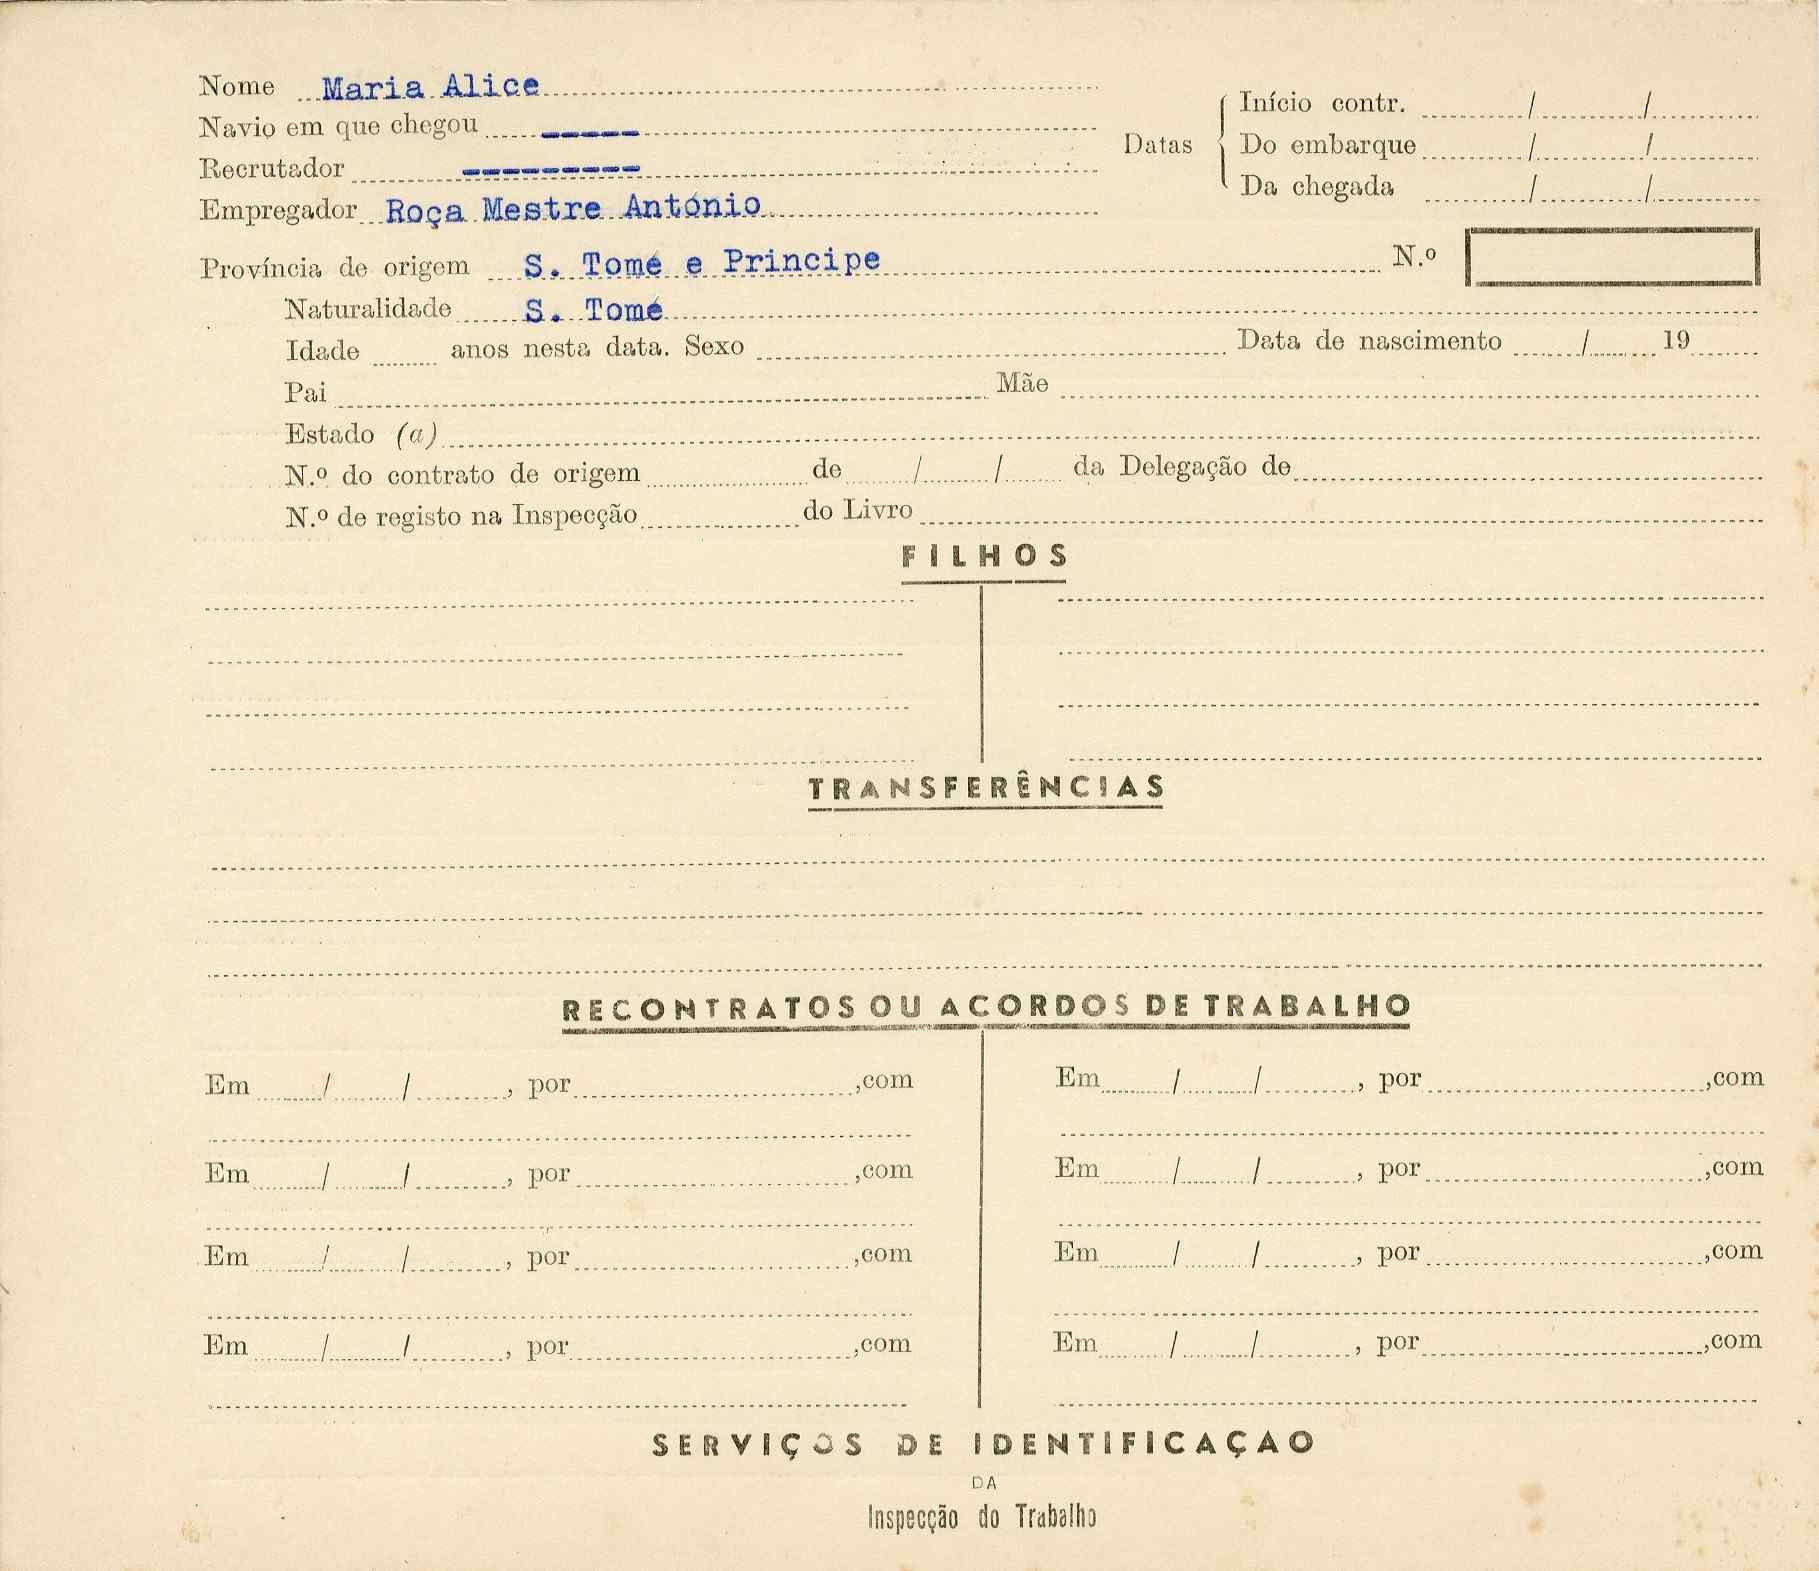 Nome Maria Alice
Navio em que chegou -----
Recrutador ---------
Empregador Roça Mestre António
Datas
Início contr. / /
Do embarque / /
Da chegada / /
Província de origem S. Tomé e Principe N.º
Naturalidade S. Tomé
Idade anos nesta data. Sexo Data de nascimento / 19
Pai Mãe
Estado (a)
N.º do contrato de origem de / / da Delegação de
N.º de registo na Inspecção do Livro
FILHOS
TRANSFERÊNCIAS
RECONTRATOS OU ACORDOS DE TRABALHO
Em / / , por ,com
Em / / , por ,com
Em / / , por ,com
Em / / , por ,com
Em / / , por ,com
Em / / , por ,com
Em / / , por ,com
Em / / , por ,com
SERVIÇOS DE IDENTIFICAÇAO
DA
Inspecção do Trabalho